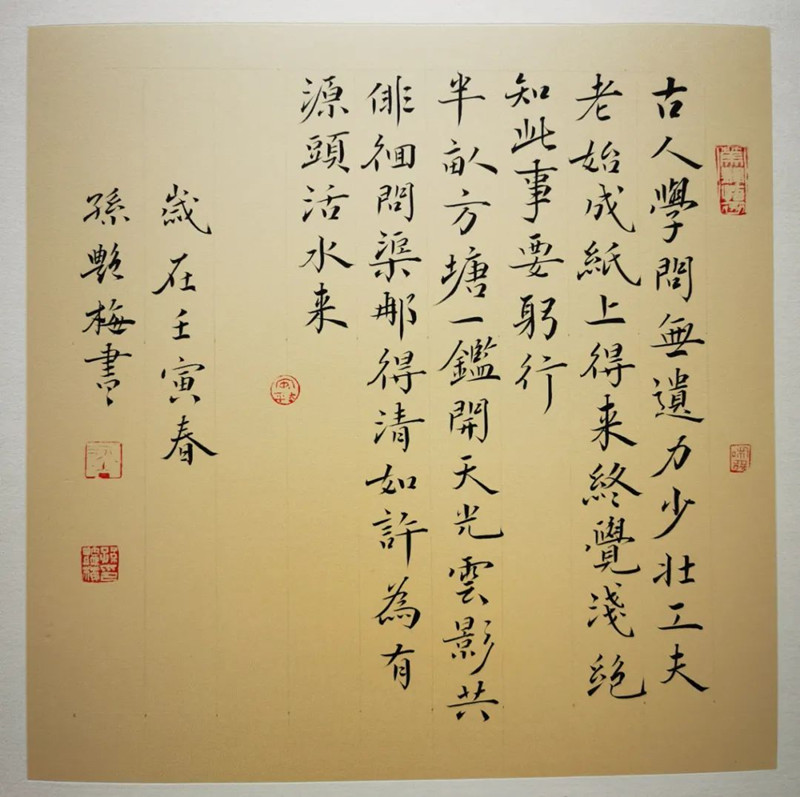 古人學問無遺力少壯工夫
老始成紙上得来終覺淺絕
知此事要躬行
半畝方塘一鑑開天光雲影共
俳徊問渠那得清如許為有
源頭活水来
歲在壬寅春
孫艷梅書